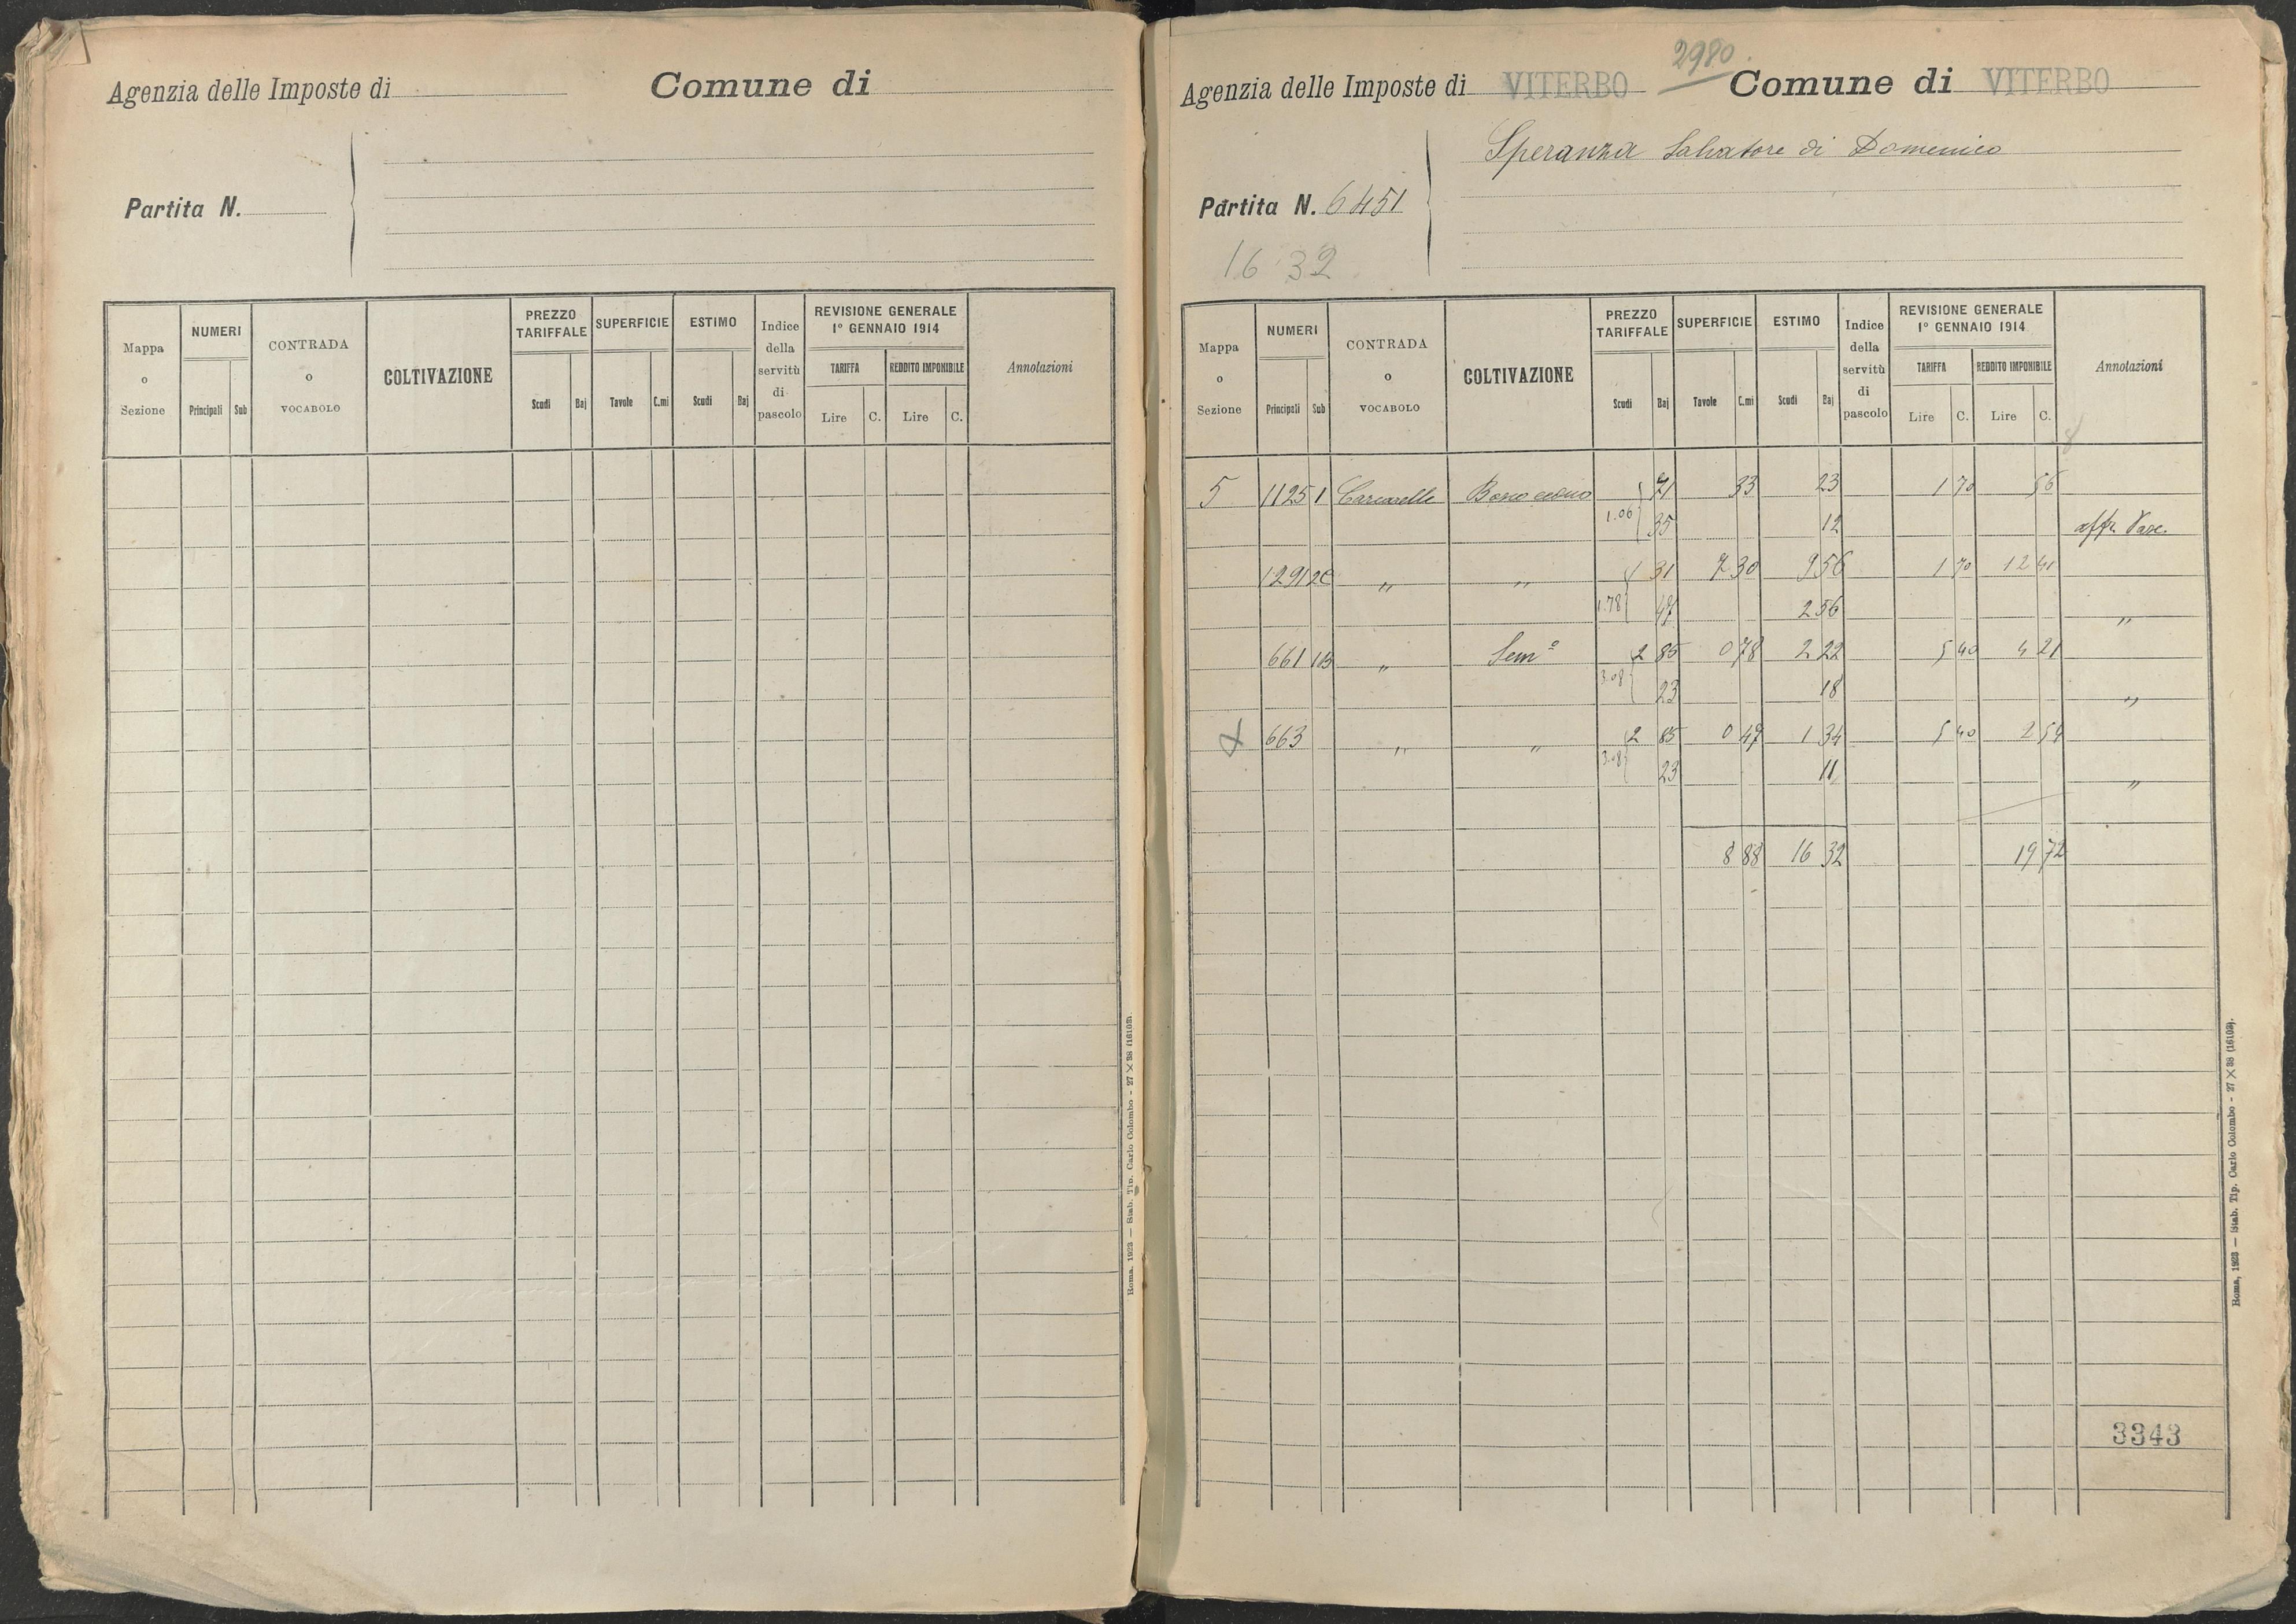 Agenzia delle Imposte di Comune di
Partita N.
Mappa o Sezione NUMERI Principali Sub CONTRADA o VOCABOLO COLTIVAZIONE PREZZO TARIFFALE Scudi Baj SUPERFICIE Tavole C.mi ESTIMO Scudi Baj Indice della servitù di pascolo REVISIONE GENERALE 1° GENNAIO 1914 TARIFFA Lire C. REDDITO IMPONIBILE Lire C. Annotazioni
Roma, 1923 — Stab. Tip. Carlo Colombo - 27 × 38 (16102).
2980
Agenzia delle Imposte di VITERBO Comune di VITERBO
Speranza Salvatore di Domenico
Partita N. 6451
16 32
Mappa o Sezione NUMERI Principali Sub CONTRADA o VOCABOLO COLTIVAZIONE PREZZO TARIFFALE Scudi Baj SUPERFICIE Tavole C.mi ESTIMO Scudi Baj Indice della servitù di pascolo REVISIONE GENERALE 1° GENNAIO 1914 TARIFFA Lire C. REDDITO IMPONIBILE Lire C. Annotazioni
5 1125 1 Bosco ceduo 71 33 23 1 70 56
1.06 35 12 affr.
1291 2C " " 1 31 7 30 9 56 1 70 12 41
1.78 47 2 56 "
661 1B " Sem° 2 85 0 78 2 22 5 40 4 21
3.08 23 18 "
663 " " 2 85 0 47 1 34 5 40 2 54
3.08 23 11 "
8 88 16 32 19 72
3343
Roma, 1923 — Stab. Tip. Carlo Colombo - 27 × 38 (16102).